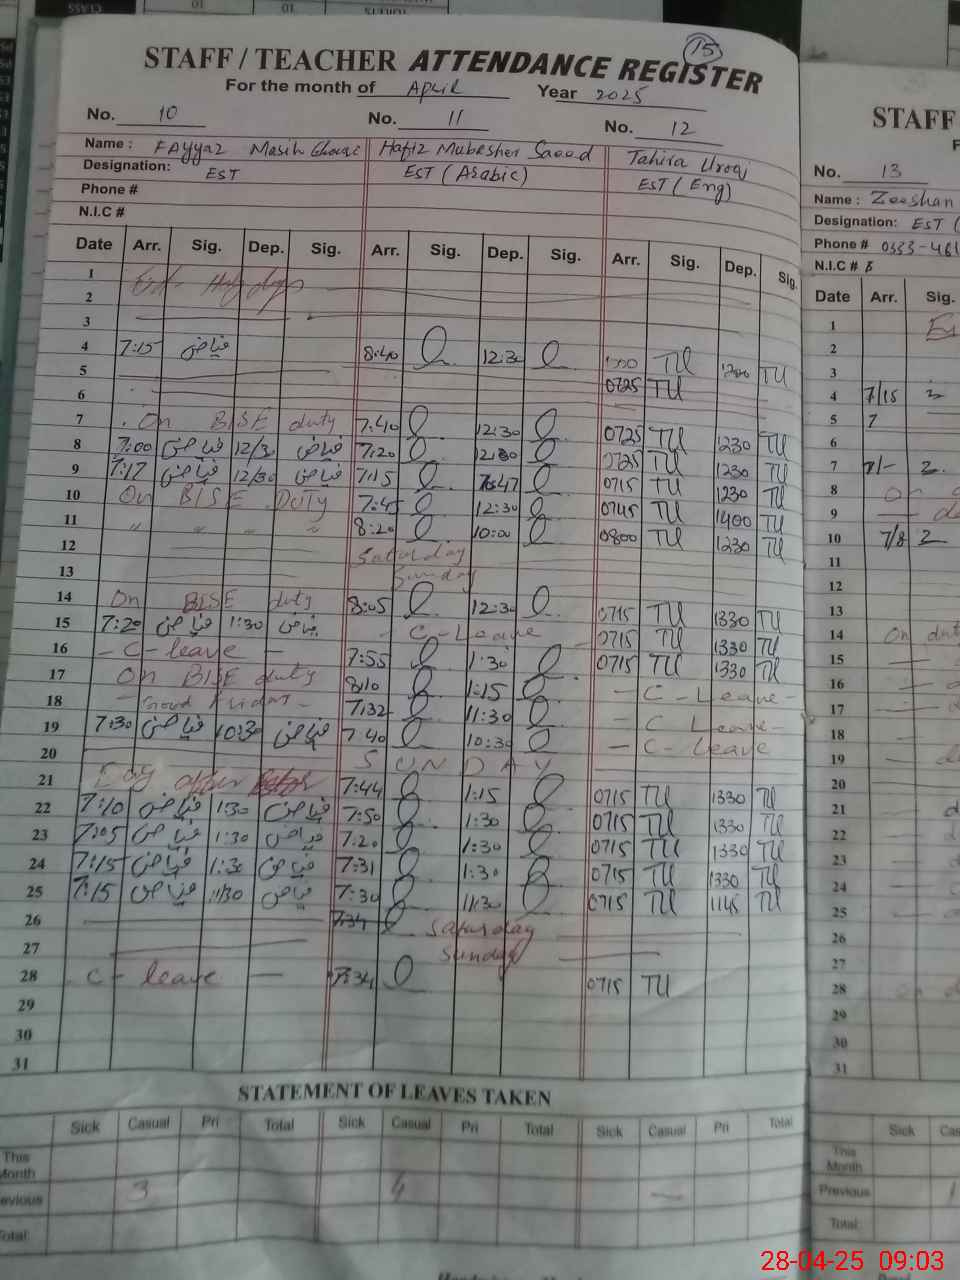 15
STAFF / TEACHER ATTENDANCE REGISTER
For the month of April Year 2025
No. 10 No. 11 No. 12
Name : FAyyaz Masih Hafiz Mubesher Saeed Tahira
Designation: EST EST (Arabic) EST (Eng)
Phone #
N.I.C #
Date Arr. Sig. Dep. Sig. Arr. Sig. Dep. Sig. Arr. Sig. Dep. Sig.
1
2
3
4 7:15 فیاض 8:40 12:30 TU 1200 TU
5 0725 TU
6
7 On BISE duty 7:40 12:30 0725 TU 1230 TU
8 7:00 فیاض 12/30 فیاض 7:20 12:30 0725 TU 1230 TU
9 7:17 فیاض 12/30 فیاض 7:15 0715 TU 1230 TU
10 On BISE DUTY 7:45 12:30 0745 TU 1400 TU
11 " " " " 8:20 10:00 0800 TU 1230 TU
12 Saturday
13 Sunday
14 On BISE duty 8:05 12:30 0715 TU 1330 TU
15 7:20 فیاض 1:30 فیاض - C-Leave - 0715 TU 1330 TU
16 - C-leave - 7:55 1:30 0715 TU 1330 TU
17 On BISE duty 8:10 1:15 - C-Leave-
18 - Good Friday - 7:32 11:30 - C Leave-
19 7:30 فیاض 10:30 فیاض 7:40 10:30 - C-Leave
20 SUNDAY
21 Day after 7:44 1:15 0715 TU 1330 TU
22 7:10 فیاض 1:30 فیاض 7:50 1:30 0715 TU 1330 TU
23 7:05 فیاض 1:30 فیاض 7:20 1:30 0715 TU 1330 TU
24 7:15 فیاض 1:30 فیاض 7:31 1:30 0715 TU 1330 TU
25 7:15 فیاض 11:30 فیاض 7:30 11:30 0715 TU 1145 TU
26 7:34 Saturday
27 Sunday
28 C-leave - 7:34 0715 TU
29
30
31
STATEMENT OF LEAVES TAKEN
Sick Casual Pri Total Sick Casual Pri Total Sick Casual Pri Total
This Month
Previous 3 4 —
Total:
STAFF
No. 13
Name : Zeeshan
Designation: EST (
Phone # 0333-461
N.I.C #
Date Arr. Sig.
1
2
3
4 7/15
5 7
6
7 7/-
8 On d
9
10 7/8
11
12
13
14 On dut
15
16
17
18
19
20
21
22
23
24
25
26
27
28
29
30
31
Sick
This Month
Previous 1
Total:
28-04-25 09:03